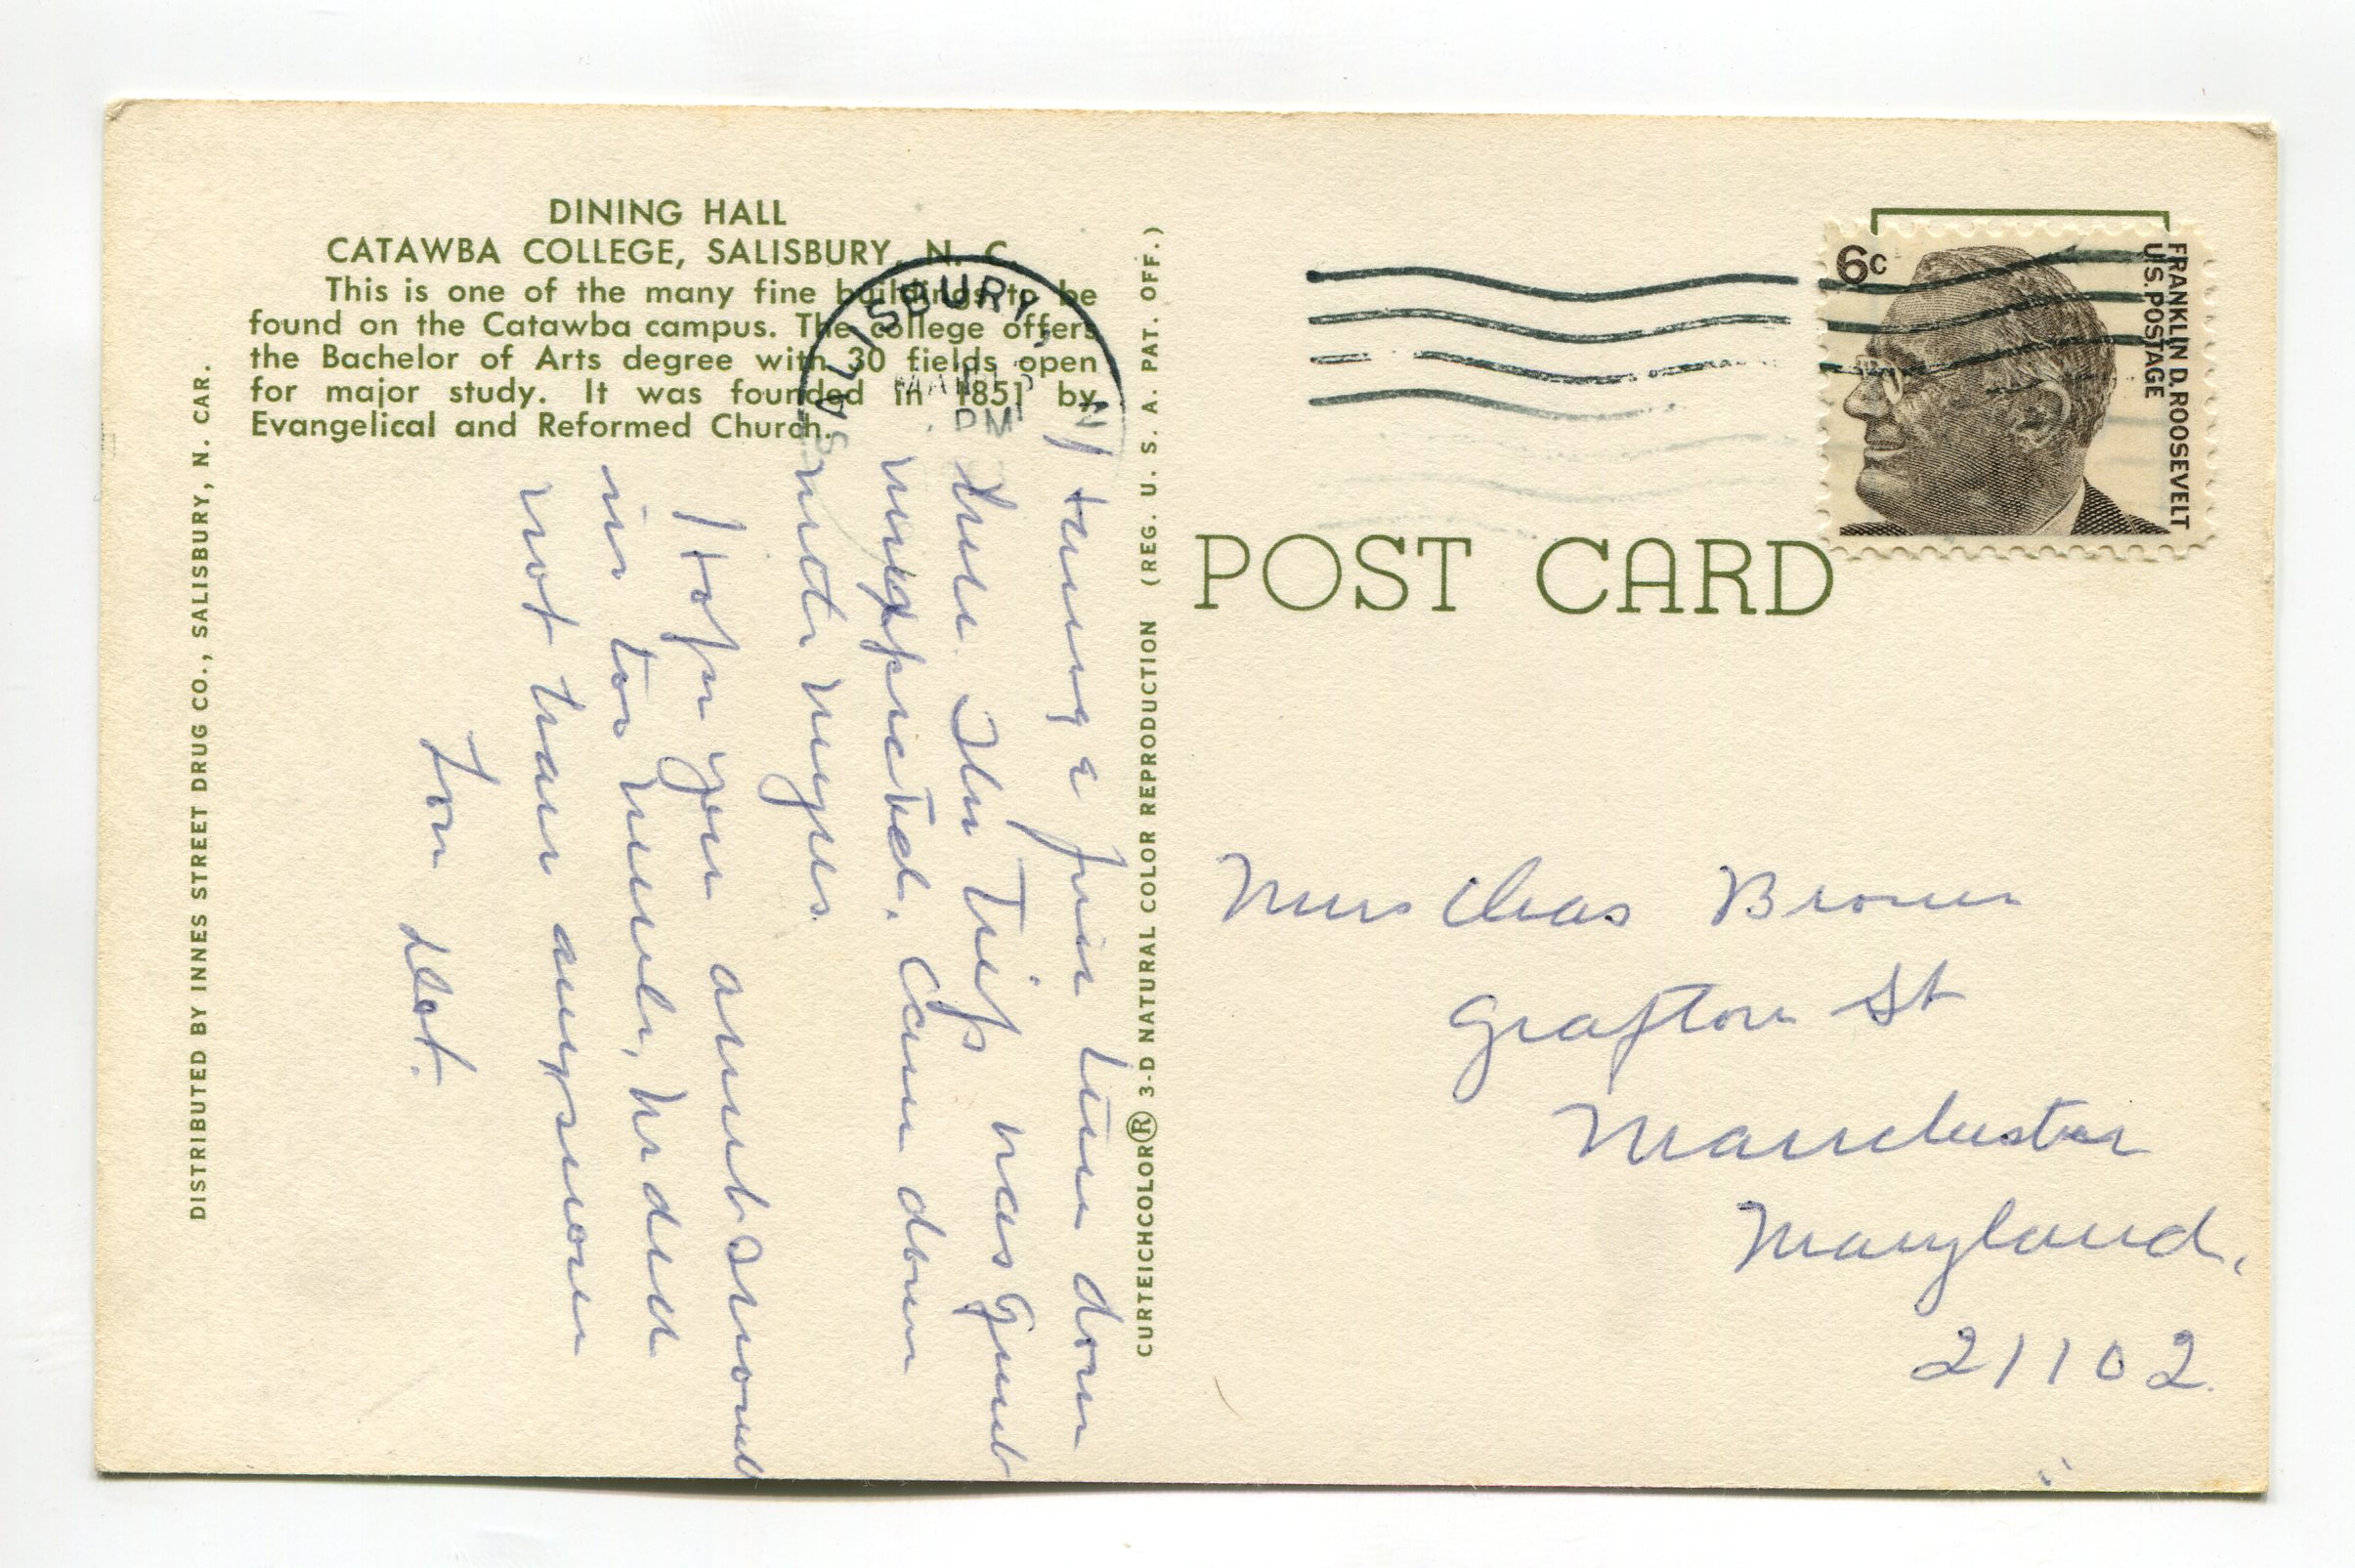 DINING HALL
CATAWBA COLLEGE, SALISBURY, N. C.
This is one of the many fine buildings to be
found on the Catawba campus. The college offers
the Bachelor of Arts degree with 30 fields open
for major study. It was founded in 1851 by
Evangelical and Reformed Church.
DISTRIBUTED BY INNES STREET DRUG CO., SALISBURY, N. CAR.
CURTEICHCOLOR® 3-D NATURAL COLOR REPRODUCTION (REG. U. S. A. PAT. OFF.)
SALISBURY, N
MAR
PM
6c
FRANKLIN D. ROOSEVELT
U.S. POSTAGE
POST CARD
Having a fine time down
here. The trip was quite
unexpected. Came down
with
Hope you arent snowed
in too much, we did
not have any snow
Love Dot.
Mrs Chas Brown
Grafton St
Manchester
Maryland,
21102